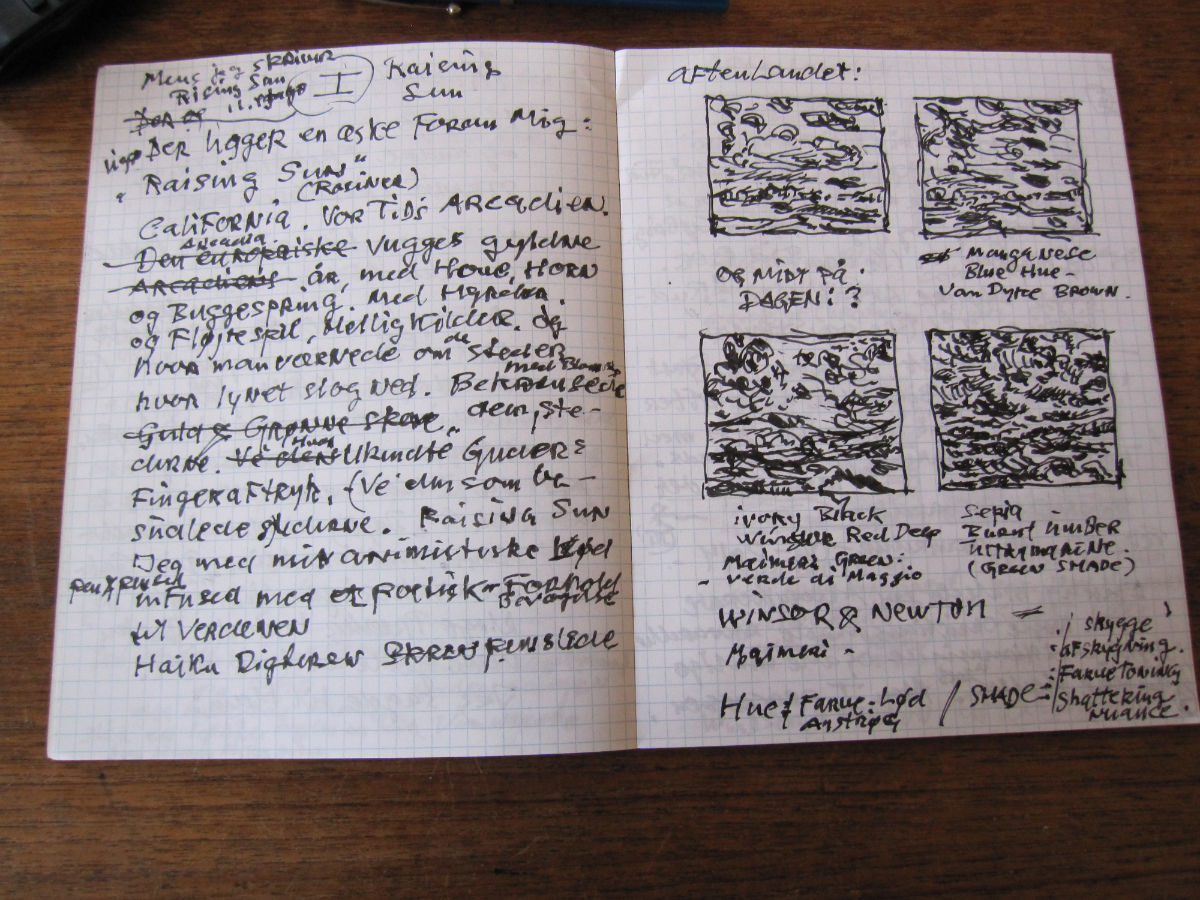 Mens jeg skriver
Rising Sun
I
Raising
Sun
Der ligger en æske Foran Mig:
"Raising Sun"
(Rosiner)
California. Vor Tids Arcadien.
Arcadia
Den europæiske vugges gyldne
Arcadiens år, med Hove, Horn
og Bukkespring. Med Hyrder.
og Fløjtespil, Hellig Kilder. og
hvor man værnede om de steder
med Blomster
hvor lynet slog ned. Bekransede
Guld & Grønne skove dem, ste-
derne. Ukendte Guders
Fingeraftryk. (Ve dem som be-
sudlede stederne. Raising Sun
Jeg med min animistiske Lød
infused med et poetisk Forhold
til Verdenen
Haiku Digteren
Aftenlandet:
og midt på
Dagen: ?
Manganese
Blue Hue -
Van Dyke Brown.
ivory Black
Winsor Red Deep
Maimeri Green:
- Verde di Maggio
Sepia
Burnt Umber
Ultramarine.
(Green Shade)
Winsor & Newton
Maimeri -
Hue: Farve - Lød
Anstrøg
/ SHADE:
skygge
afskygning.
Farvetoning
Shattering
nuance.